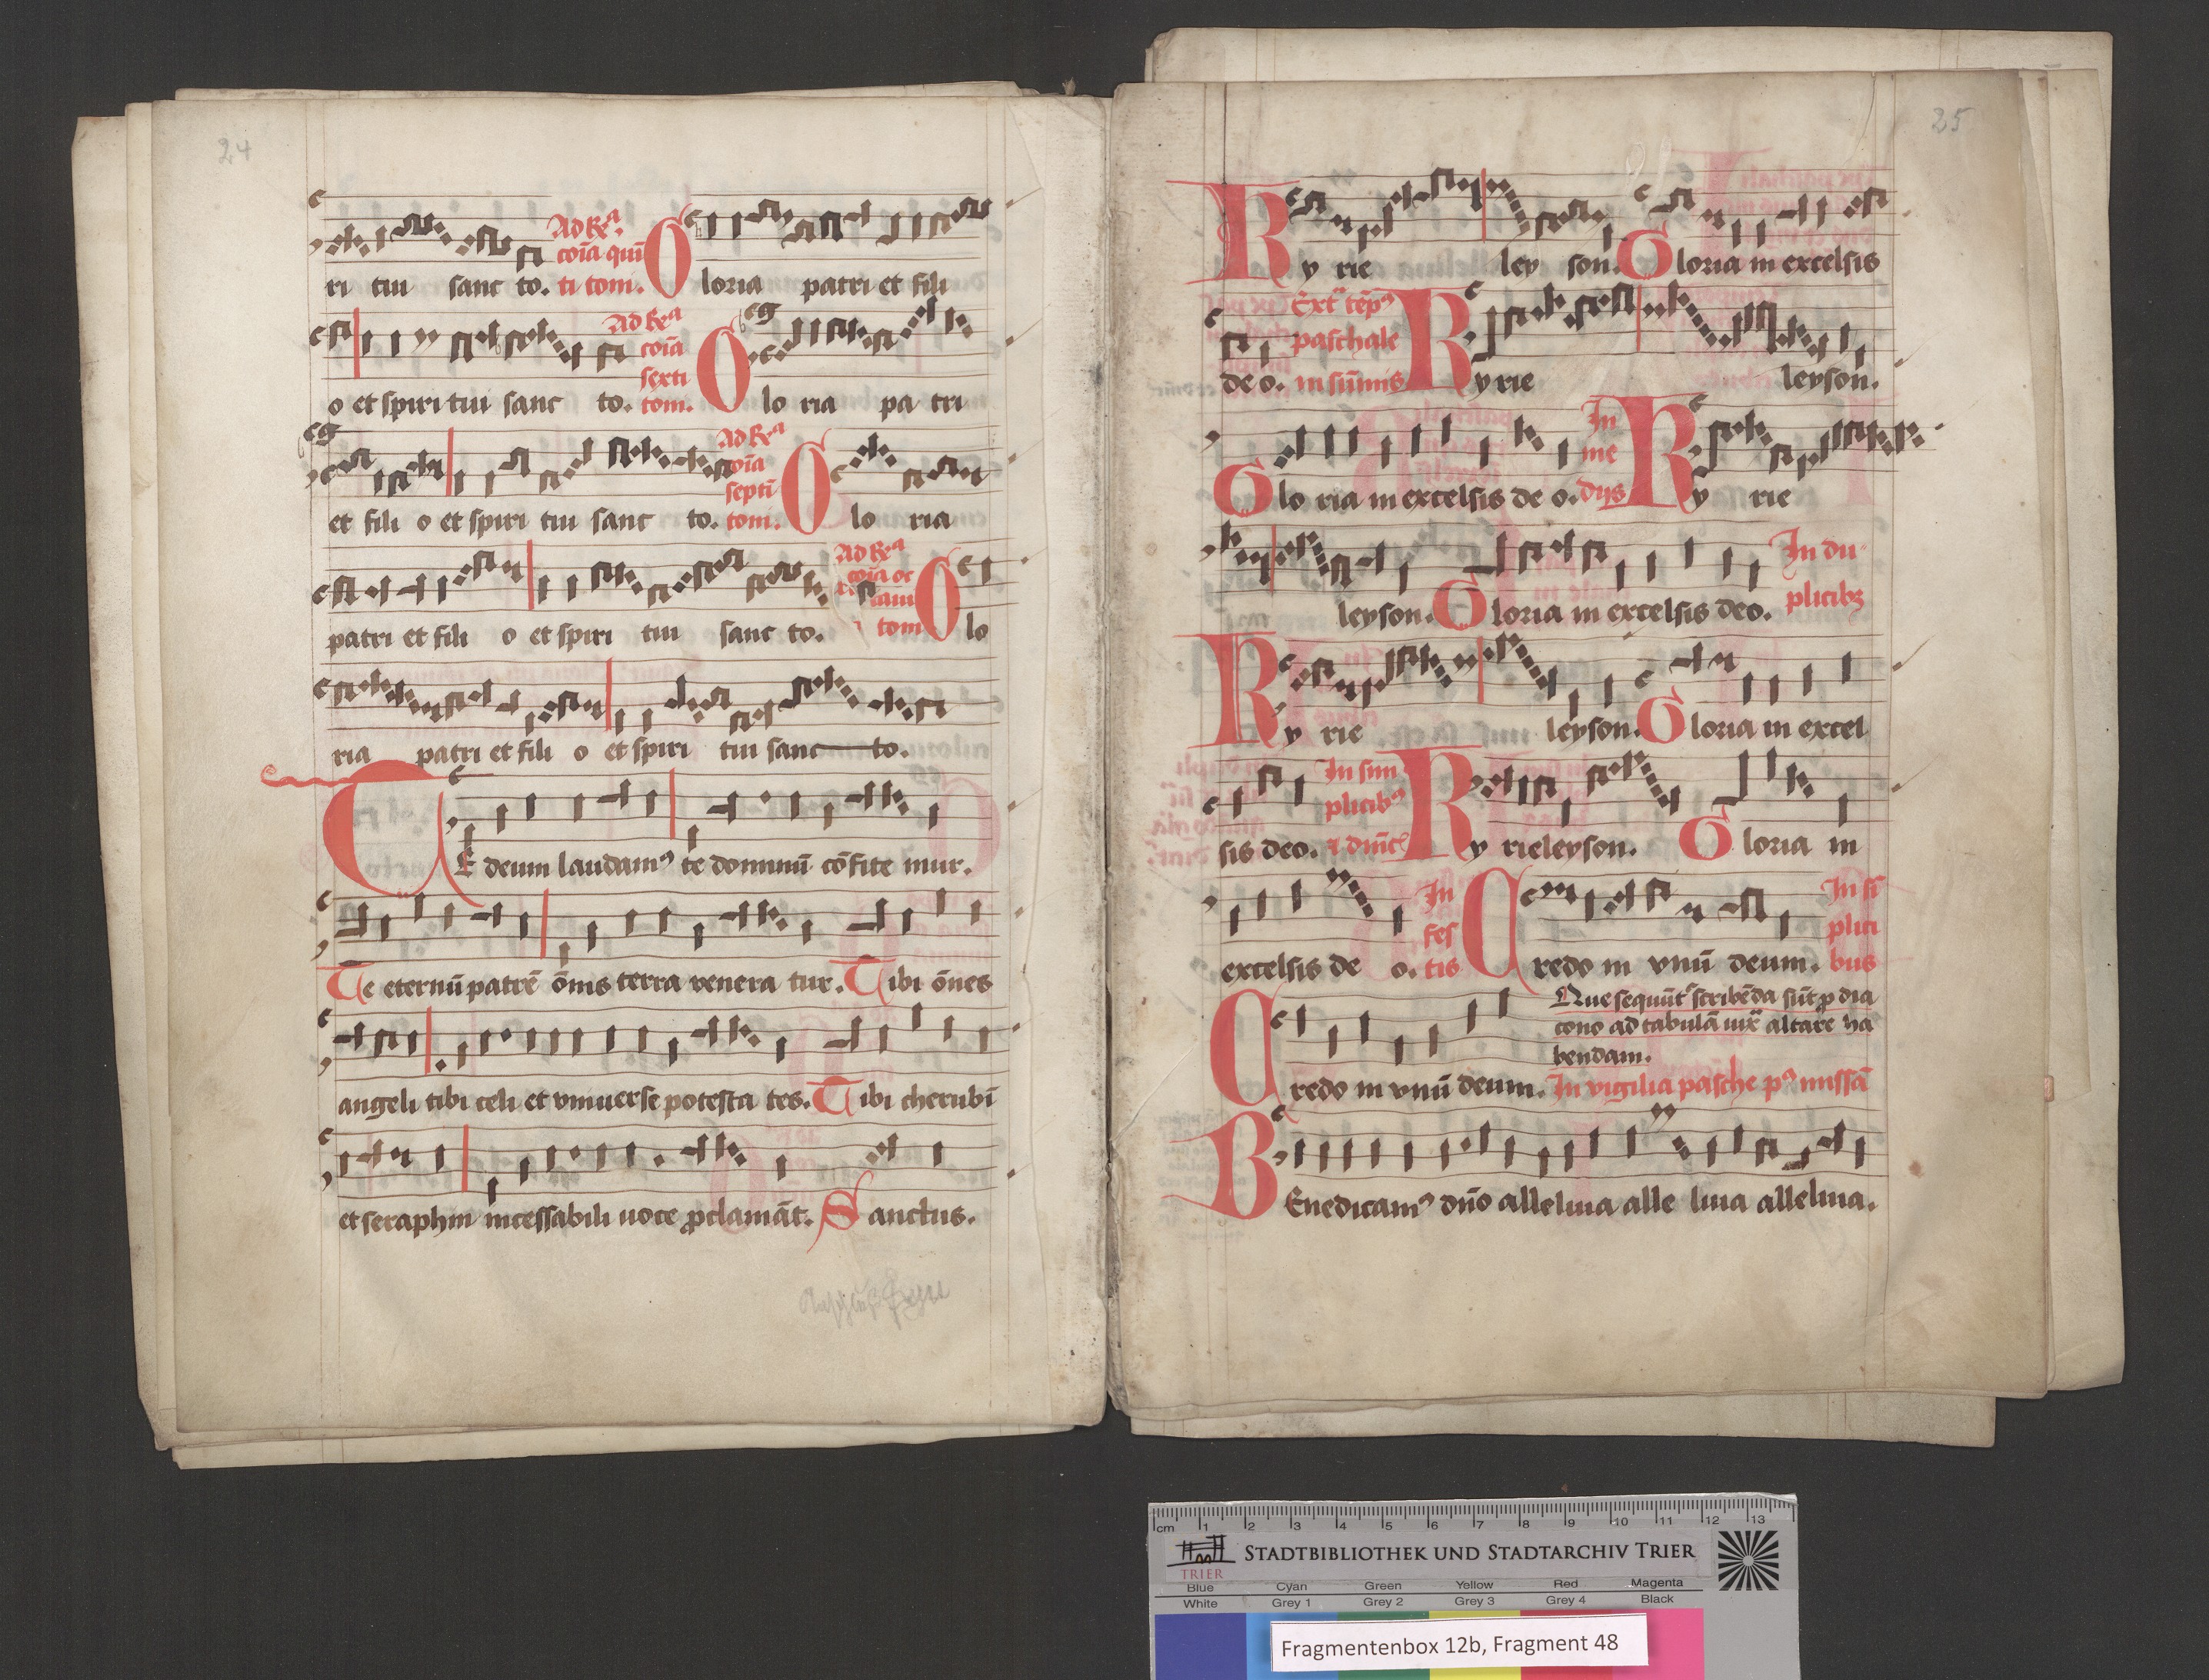 24
ri tui sanc to. ti tom. Gloria patri et fili
Ad Rᵃ
coīa quī
o et spiri tui sanc to. tom. Glo ria pa tri
Ad Rᵃ
coīa
sexti
et fili o et spiri tui sanc to. tom. Glo ria
Ad Rᵃ
coīa
septī
patri et fili o et spiri tui sanc to. Glo
Ad Rᵃ
coīa oc
taui
tom
ria patri et fili o et spiri tui sanc to.
TE deum laudamꝰ te dominū cōfite mur.
Te eternū patrē ōnis terra venera tur. Tibi ōnes
angeli tibi celi et vniuerse potesta tes. Tibi cherubī
et seraphin incessabili uoce ꝓclamāt. Sanctus.
25
Ky rie ley son. Gloria in excelsis
deo. in sūmis Kyrie leyson.
Extᵃ tēpꝰ
paschale
Glo ria in excelsis de o. Ky rie
In
me
dijs
leyson. Gloria in excelsis deo.
In du
plicibꝫ
Ky rie leyson. Gloria in excel
sis deo. Ky rieleyson. Gloria in
In sim
plicibꝰ
excelsis de o. Credo in vnū deum.
In
fes
tis
In sī
plici
bus
Credo in vnū deum. In vigilia pasche pꝰ missā
Que sequūtʳ scribēda sūt ꝓ dia
cono ad tabulā iuxᵃ altare ha
bendam.
BEnedicamꝰ dn̄o alleluia alle luia alleluia.
cm 1 2 3 4 5 6 7 8 9 10 11 12 13
TRIER
STADTBIBLIOTHEK UND STADTARCHIV TRIER
Blue Cyan Green Yellow Red Magenta
White Grey 1 Grey 2 Grey 3 Grey 4 Black
Fragmentenbox 12b, Fragment 48